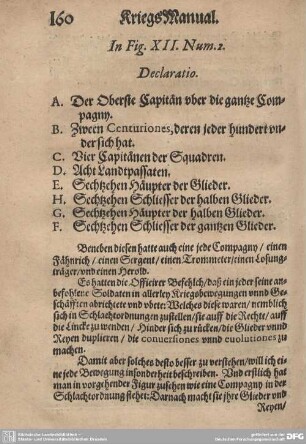 160
KriegsManual.
In Fig. XII. Num. 2.
Declaratio.
A. Der Oberste Capitän vber die gantze Com-
pagny.
B. Zween Centuriones, deren jeder hundert vn-
der sich hat.
C. Vier Capitänen der Squadren.
D. Acht Landtpassaten.
E. Sechtzehen Häupter der Glieder.
H. Sechtzehen Schliesser der halben Glieder.
G. Sechtzehen Häupter der halben Glieder.
F. Sechtzehen Schliesser der gantzen Glieder.
Beneben diesen hatte auch eine jede Compagny / einen
Fähnrich / einen Sergent / einen Trommeter / einen Losung-
träger / vnd einen Herold.
Es hatten die Officirer Befehlch / daß ein jeder seine an-
befohlene Soldaten in allerley Kriegsbewegungen vnd Ge-
schäfften abrichtete vnd vbete: Welches diese waren / nemblich
sich in Schlachtordnungen zustellen / sie auff die Rechte / auff
die Lincke zu wenden / Hinder sich zu rücken / die Glieder vnnd
Reyen duplieren / die conuersiones vnnd euolutiones zu
machen.
Damit aber solches desto besser zu verstehen / will ich ei-
ne jede Bewegung insonderheit beschreiben. Vnd erstlich hat
man in vorgehender Figur zusehen wie eine Compagny in der
Schlachtordnung stehet: Darnach macht sie ihre Glieder vnd
Reyen /